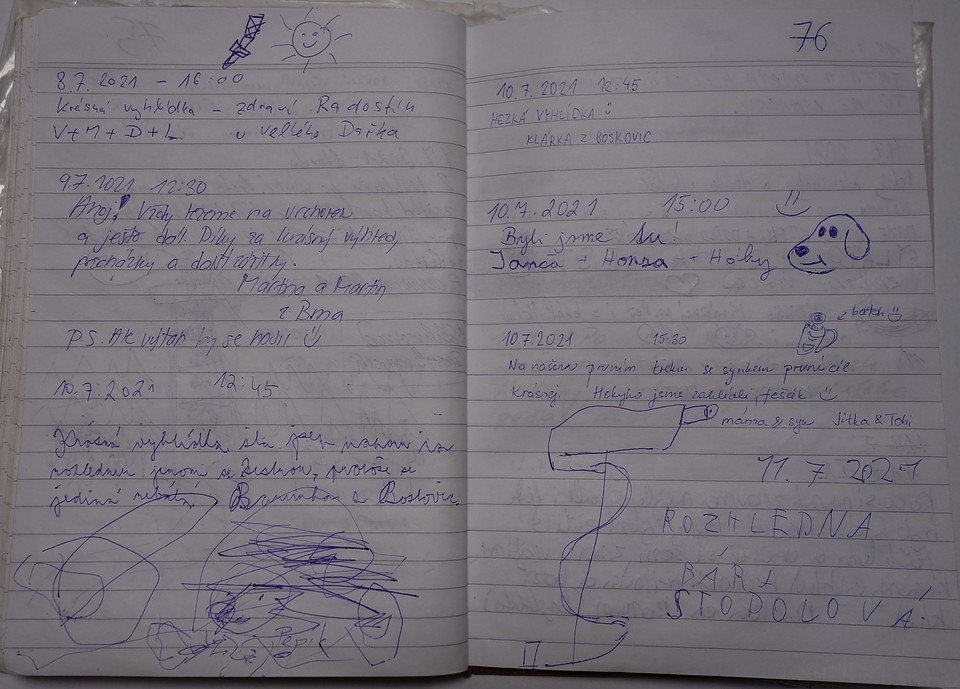 8.7.2021 – 16:00
Krásná vyhlídka – zdraví Radostín
V+M+D+L u Velkého Dářka
9.7.2021 12:30
Ahoj! Vždy lezeme na vrcholek
a ještě dál. Díky za krásný výhled,
procházky a
Martina a Martin
z Brna
P.S. Ale výtah by se hodil
10.7.2021 12:45
Krásná vyhlídka šla jsem nahoru na
rozhlednu se protože se
jediná z Boskovic
Pepík
76
10.7.2021 12:45
HEZKÁ VYHLÍDKA
KLÁRKA Z BOSKOVIC
10.7.2021 15:00
Byli jsme tu!
Janča + Honza + Hóky
10.7.2021 15:30
Na našem prvním treku se synkem první cíl.
Krásnej. Hokyho jsme zahlídli, fešák
máma & syn Jitka & Tobi
11.7.2021
ROZHLEDNA
BÁRA
STODOLOVÁ.